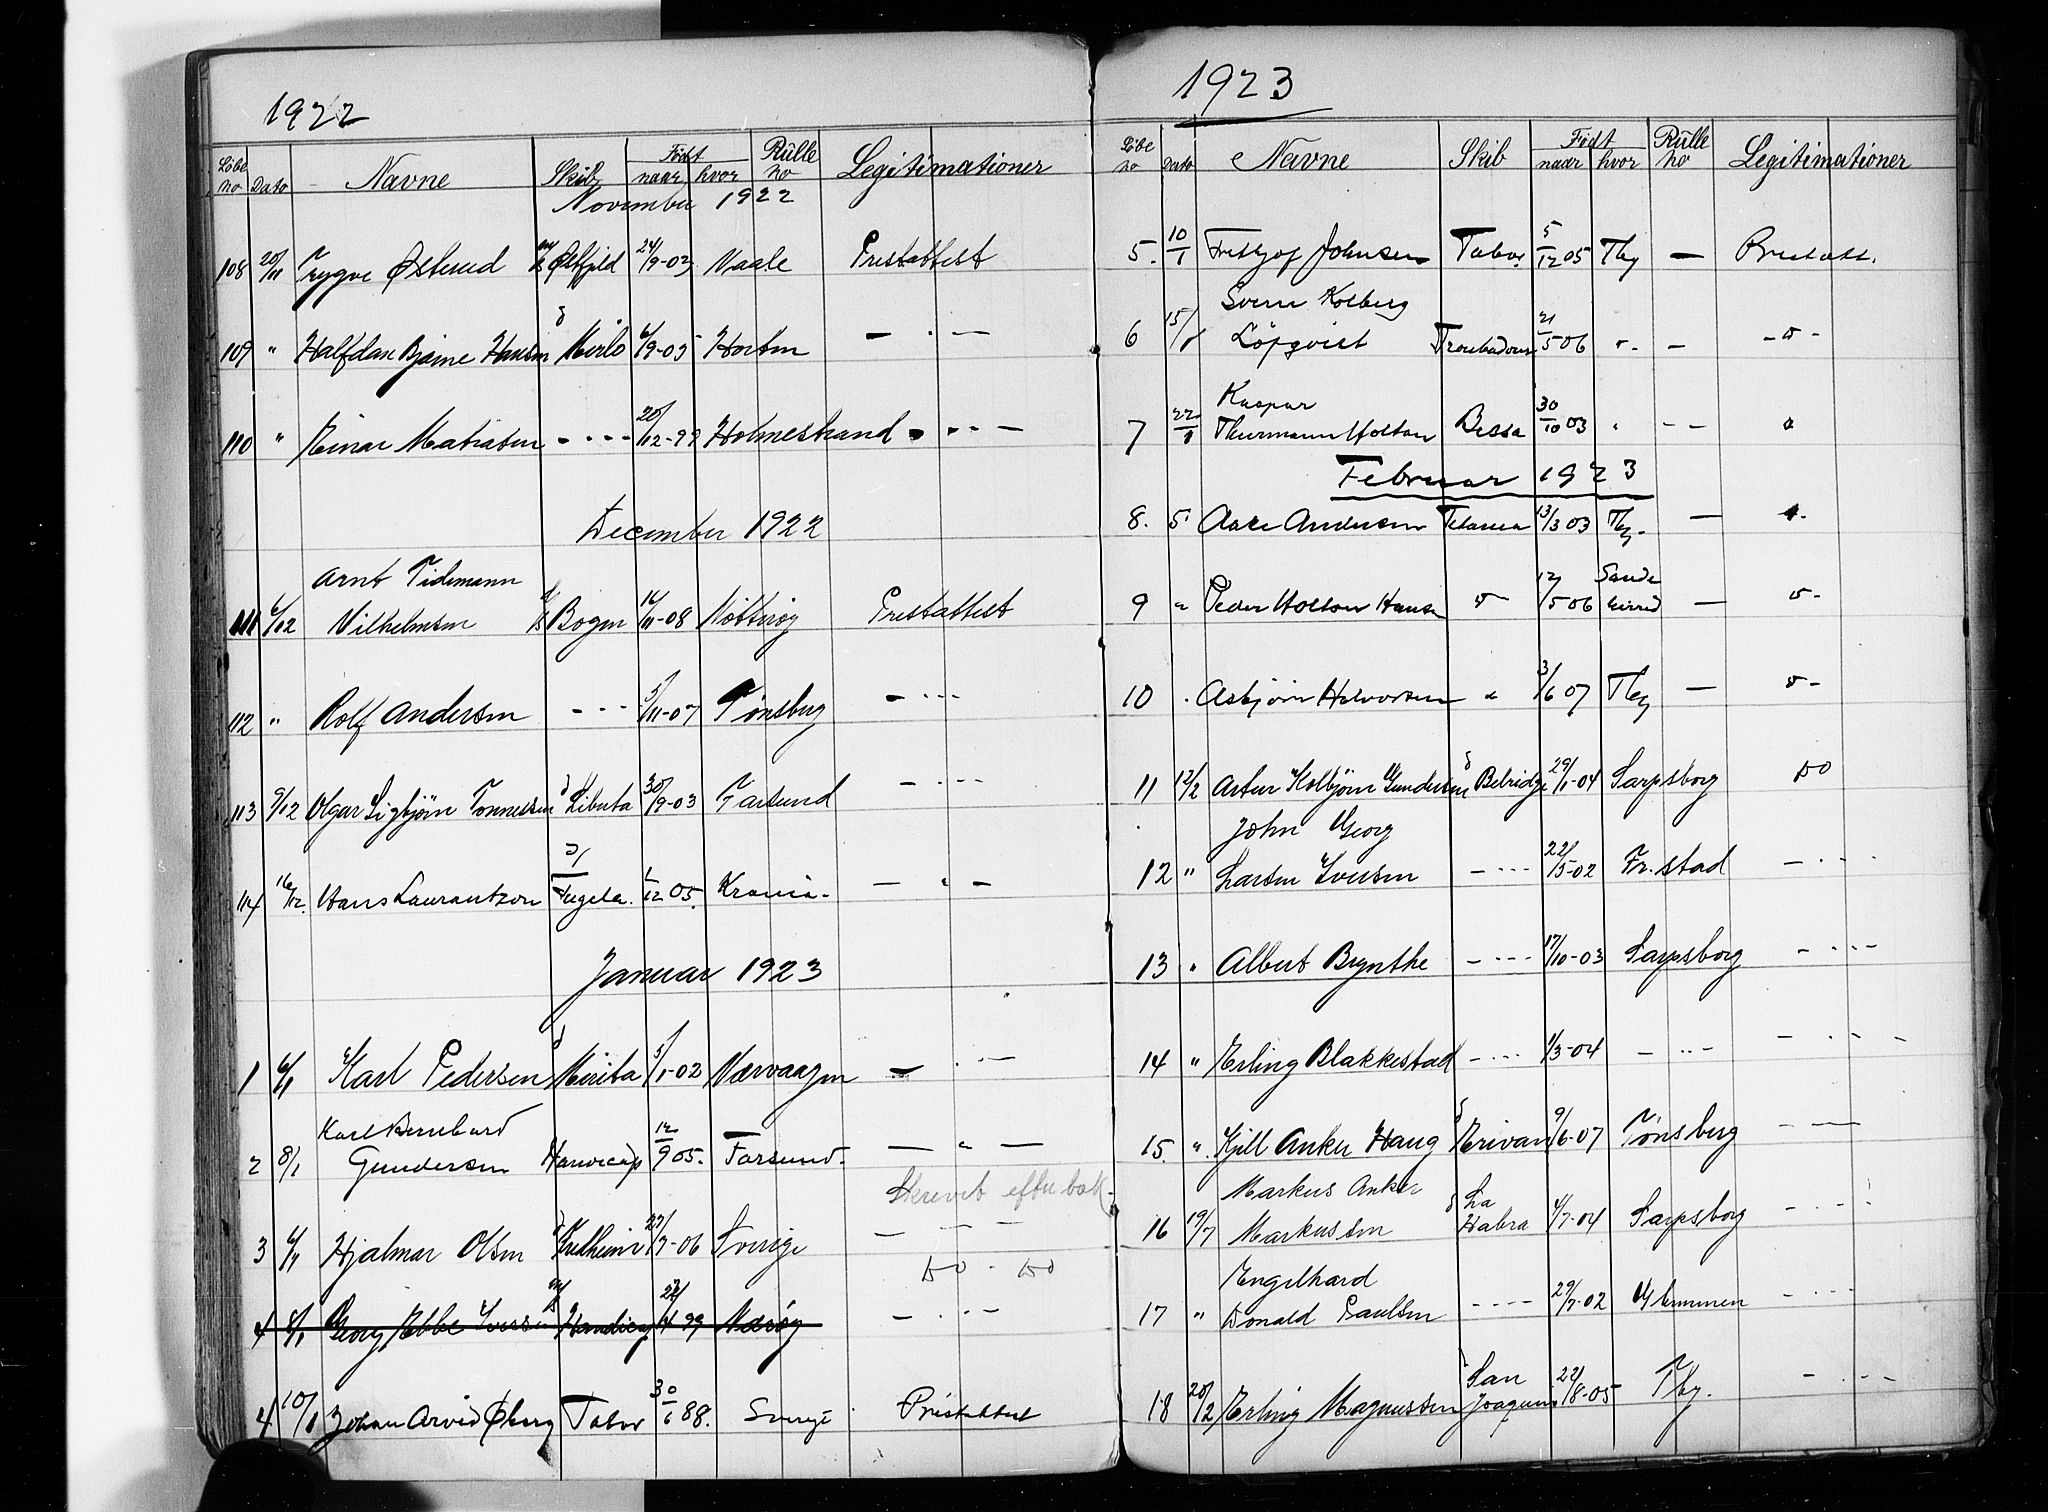 1922
Löbe no Dato Navne Skib Født naar hvor Rulle no Legitimationer
November 1922
108 20/11 Trygve Østerud M/S Østfold 24/9-03 Vaale Prestattest
109 " Halfdan Bjarne Hansen d Mirlo 6/9-05 Horten — . —
110 " Einar Mathisen - . . . - 20/12-99 Holmestrand - . . . —
December 1922
Arnt Tidemann
111 6/12 Vilhelmsen D/S Bogen 16/11-08 Nøtterøy Prestattest
112 " Rolf Andersen - - - 5/11-07 Tønsberg - . . -
113 9/12 Olgar Sigbjörn Tønnessen d Liberta 30/9-03 Farsund — . . -
114 16/12. Hans Laurantzon D/ Tugela. 1/12 05. Krania. — . —
Januar 1923
1 6/1 Karl Pedersen d Mirita 5/1-02 Nærvaagen — . —
Karl Bernhard
2 8/1 Gundersen Handicap 12/9 05. Farsund. — " —
Skrevet efter bak.
3 6/1 Hjalmar Olsen d 27/7-06 Sverige — — —
Do - Do
4 8/1 Georg Ebbe Iversen M/S Handicap 22/4 99 — . . —
4 10/1 Johan Arvid Öberg Tabor 30/6 88. Sverige Pristattest
1923
Löbe no Dato Navne Skib Født naar hvor Rulle no Legitimationer
5. 10/1 Frithjof Johnsen Tabor. 5/12 05 Tbg — Prestatt.
Sverre Kolberg
6 15/1 Löfqvist Troubadour 21/5 06 " - — - " -
Kaspar
7 22/1 Thurmann Holton Bessa 30/10 03 " — — "
Februar 1923
8. 5. Aage Andersen 13/3 03 Tbg. — "
9 " Peder Holtan Hansen " 12/5 06 Sande — " -
10 . Asbjörn Halvorsen " 3/6 07 Tbg — " -
11 12/2 Artur Kolbjörn Gundersen d Belridge 29/1-04 Sarpsborg Do
John Georg
12 " Larsen Iversen - . . . 22/5-02 Fr.stad — . . .
13 " Albert Brynthe - . . . - 17/10-03 Sarpsborg — . . . -
14 " Erling Blakkestad - . . . 1/3-04 — . . . — — . . —
15. " Kjell Anker Haug d Erivan 9/6-07 Tønsberg — — —
Markus Anker d La
16 19/7 Markussen Habra 4/7-04 Sarpsborg — . . .
Engelhard
17 " Donald Paulsen - - - - 29/7-02 Glemmen — . . .
18 20/2 Erling Magnussen d San Joaquin 22/8-05 Tbg. — . . . -